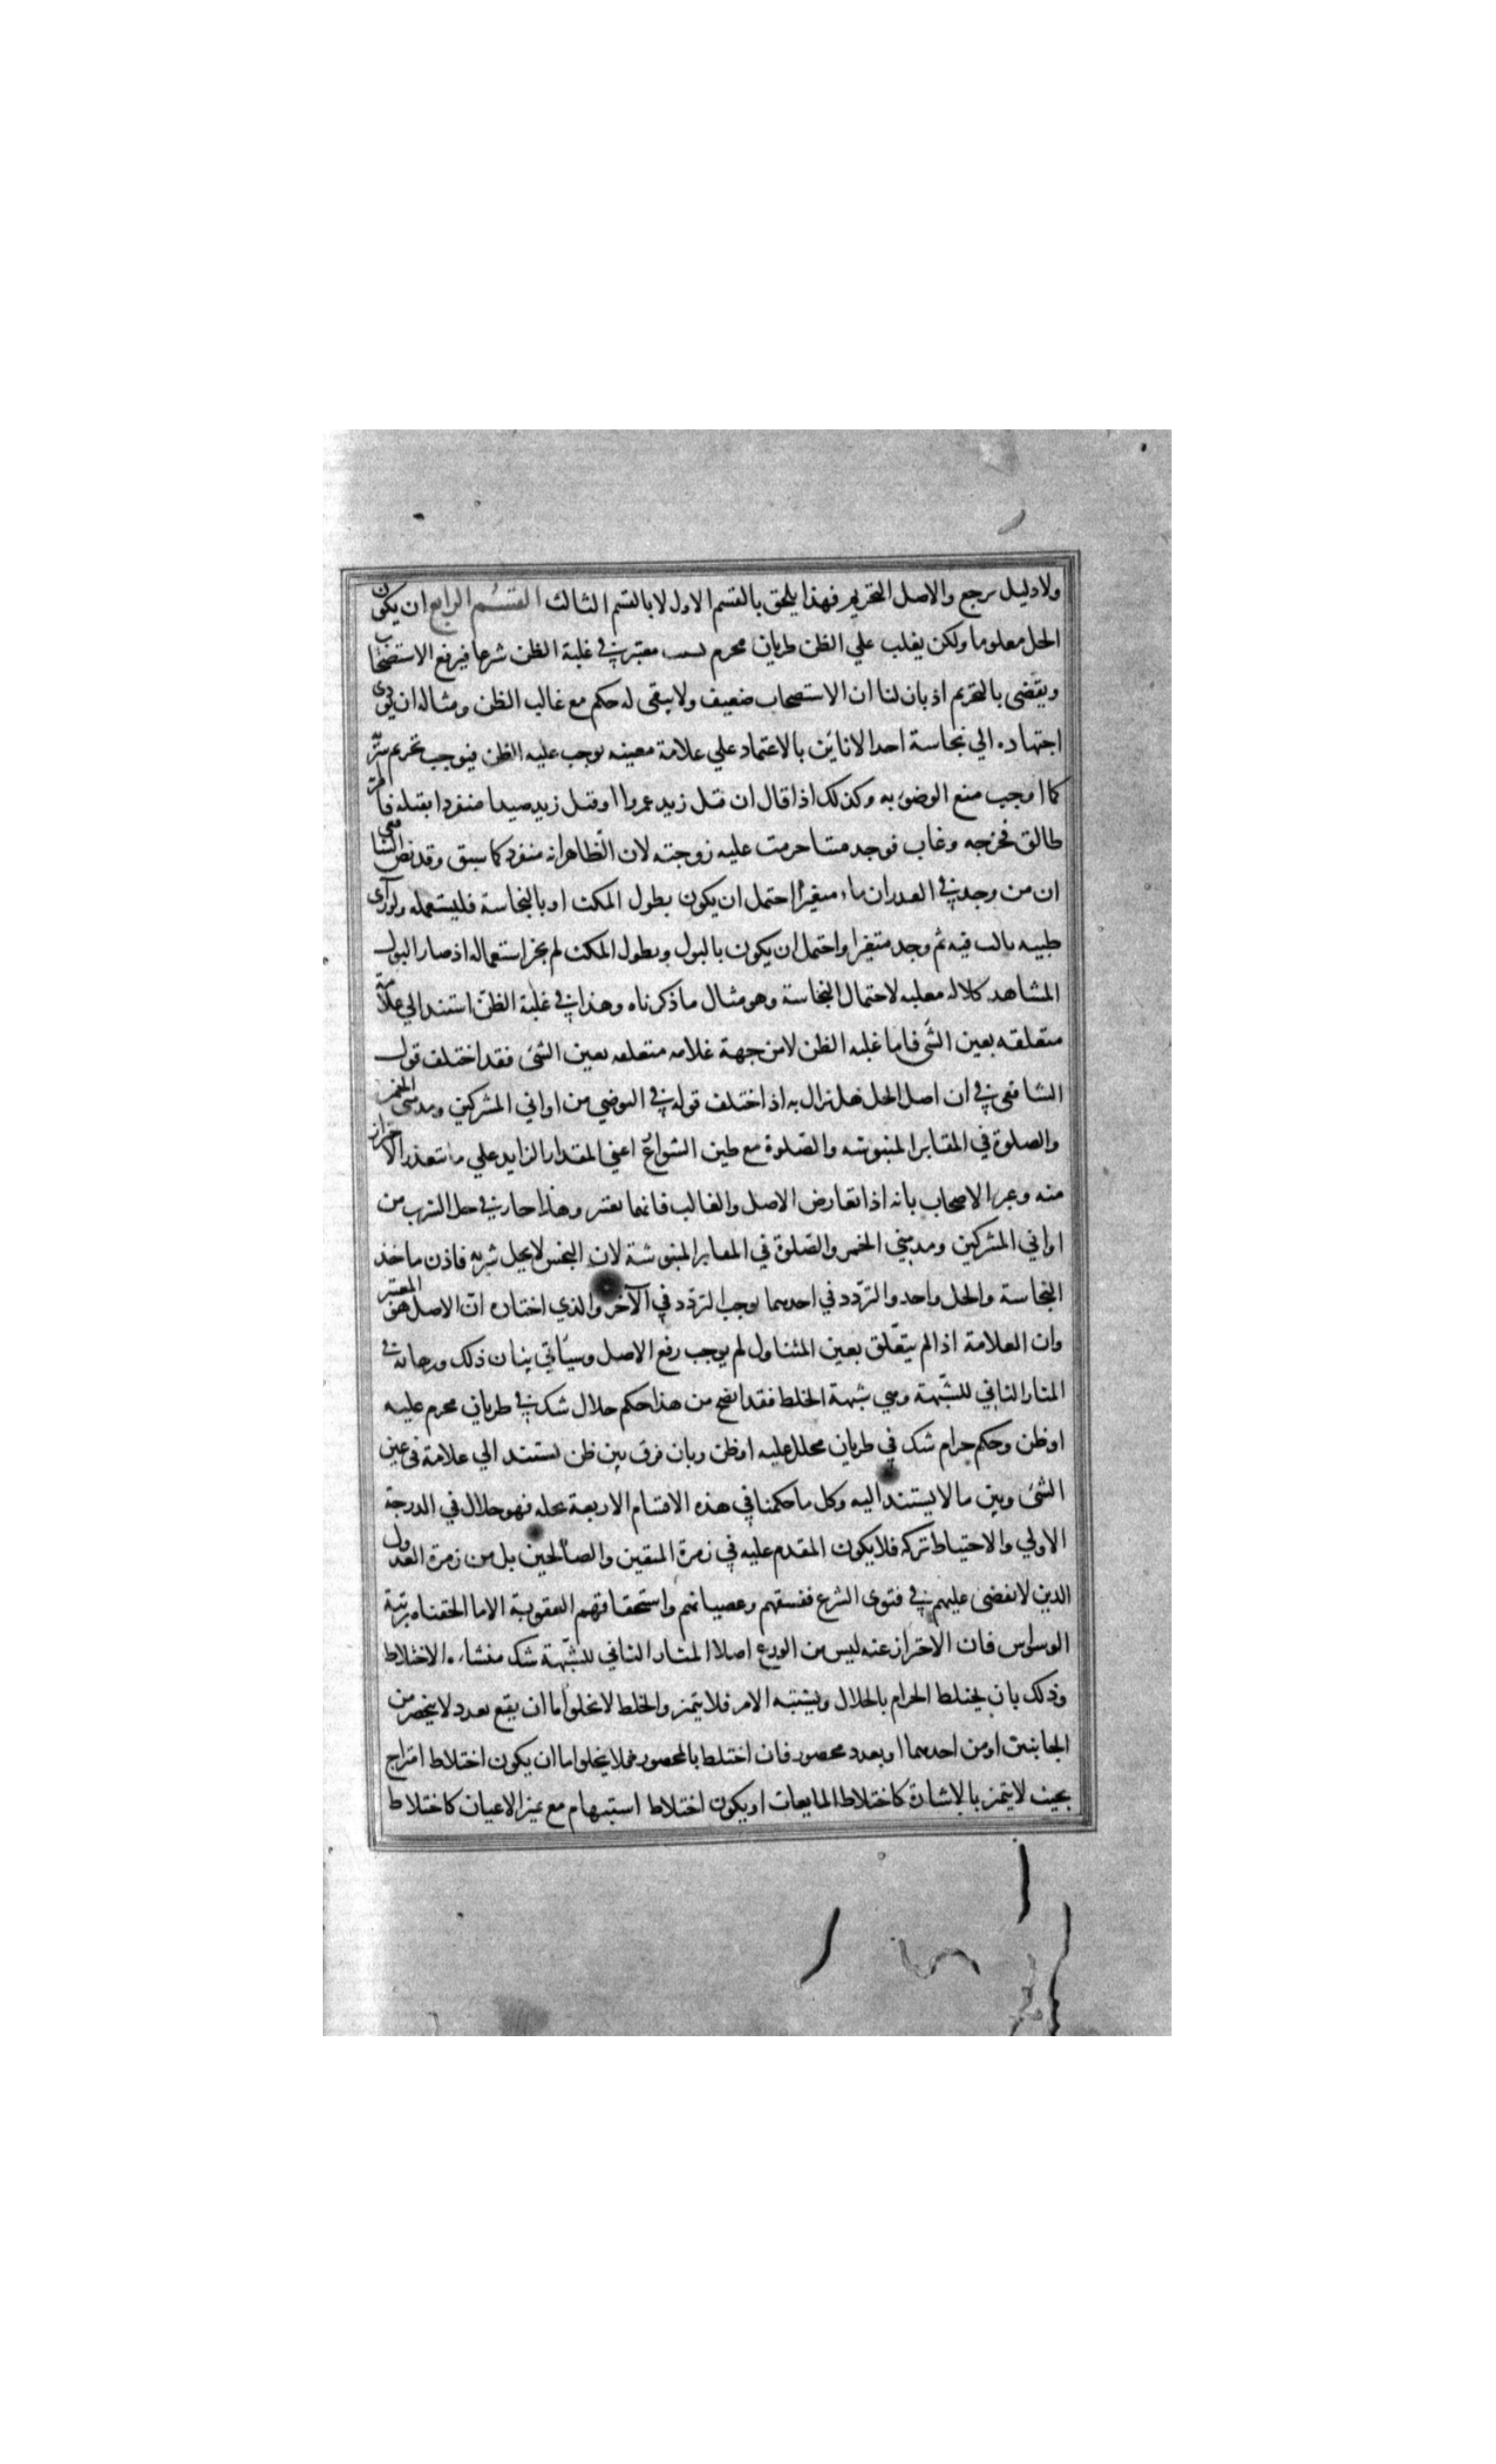 ولا دليل يرجع والاصل التحريم فهذا يلحق بالقسم الاول لا بالقسم الثالث القسم الرابع ان يكون
الحل معلوما ولكن يغلب علي الظن طريان محرم لسبب معتبر في غلبة الظن شرعا فيرفع الاستصحاب
ويقضى بالتحريم اذ بان لنا ان الاستصحاب ضعيف ولا يبقى له حكم مع غالب الظن ومثاله ان يودى
اجتهاده الي نجاسة احد الانائين بالاعتماد علي علامة معينه يوجب عليه الظن فيوجب تحريم شربه
كما اوجب منع الوضوء به وكذلك اذا قال ان قتل زيد عمروا او قتل زيد صيدا منفردا بقتله فامرأته
طالق فجرحه وغاب فوجد ميتا حرمت عليه زوجته لان الظاهر انه منفرد كما سبق وقد نص الشافعي
ان من وجد في الغدران ماء متغيرا احتمل ان يكون بطول المكث او بالنجاسة فليستعمله ولو رآى
ظبيه بالت فيه ثم وجد متغيرا واحتمل ان يكون بالبول وبطول المكث لم يجز استعماله اذ صار البول
المشاهد كلاله مغلبه لاحتمال النجاسة وهو مثال ما ذكرناه وهذا في غلبة الظن استند الي علامة
متعلقه بعين الشى فاما غلبه الظن لا من جهة علامه متعلقه بعين الشئ فقد اختلف قول
الشافعى في ان اصل الحل هل يزال به اذ اختلف قوله في التوضي من اواني المشركين ومدمني الخمر
والصلوة في المقابر المنبوشه والصلوة مع طين الشوارع اعني المقدار الزايد علي ما يتعذر الاحتراز
منه وعبر الاصحاب بانه اذا تعارض الاصل والغالب فايهما يعتبر وهذا جار في حل الشرب من
اواني المشركين ومدمني الخمر والصلوة في المقابر المنبوشة لان النجس لا يحل شربه فاذن ماخذ
النجاسة والحل واحد والتردد في احدهما يوجب التردد في الآخر والذي اختاره ان الاصل هو المعتبر
وان العلامة اذا لم يتعلق بعين المتناول لم يوجب رفع الاصل وسيأتي بيان ذلك وبرهانه في
المثار الثاني للشبهة وهي شبهة الخلط فقد اتضح من هذا حكم حلال شك في طريان محرم عليه
او ظن وحكم حرام شك في طريان محلل عليه او ظن وبان فرق بين ظن يستند الي علامة في عين
الشئ وبين ما لا يستند اليه وكل ما حكمنا في هذه الاقسام الاربعة بحله فهو حلال في الدرجة
الاولي والاحتياط تركه فلا يكون المقدم عليه في زمرة المتقين والصالحين بل من زمرة العدول
الذين لا يقضى عليهم في فتوى الشرع ففسقهم وعصيانهم واستحقاقهم العقوبة الا ما الحقناه برتبة
الوسواس فان الاحتراز عنه ليس من الورع اصلا المثار الثاني للشبهة شك منشاءه الاختلاط
وذلك بان يختلط الحرام بالحلال ويشتبه الامر فلا يتميز والخلط لا يخلوا اما ان يقع بعدد لا ينحصر من
الجانبين او من احدهما او بعدد محصور فان اختلط بالمحصور فلا يخلوا اما ان يكون اختلاط امتزاج
بحيث لا يتميز بالاشارة كاختلاط المايعات او يكون اختلاط استبهام مع تميز الاعيان كاختلاط